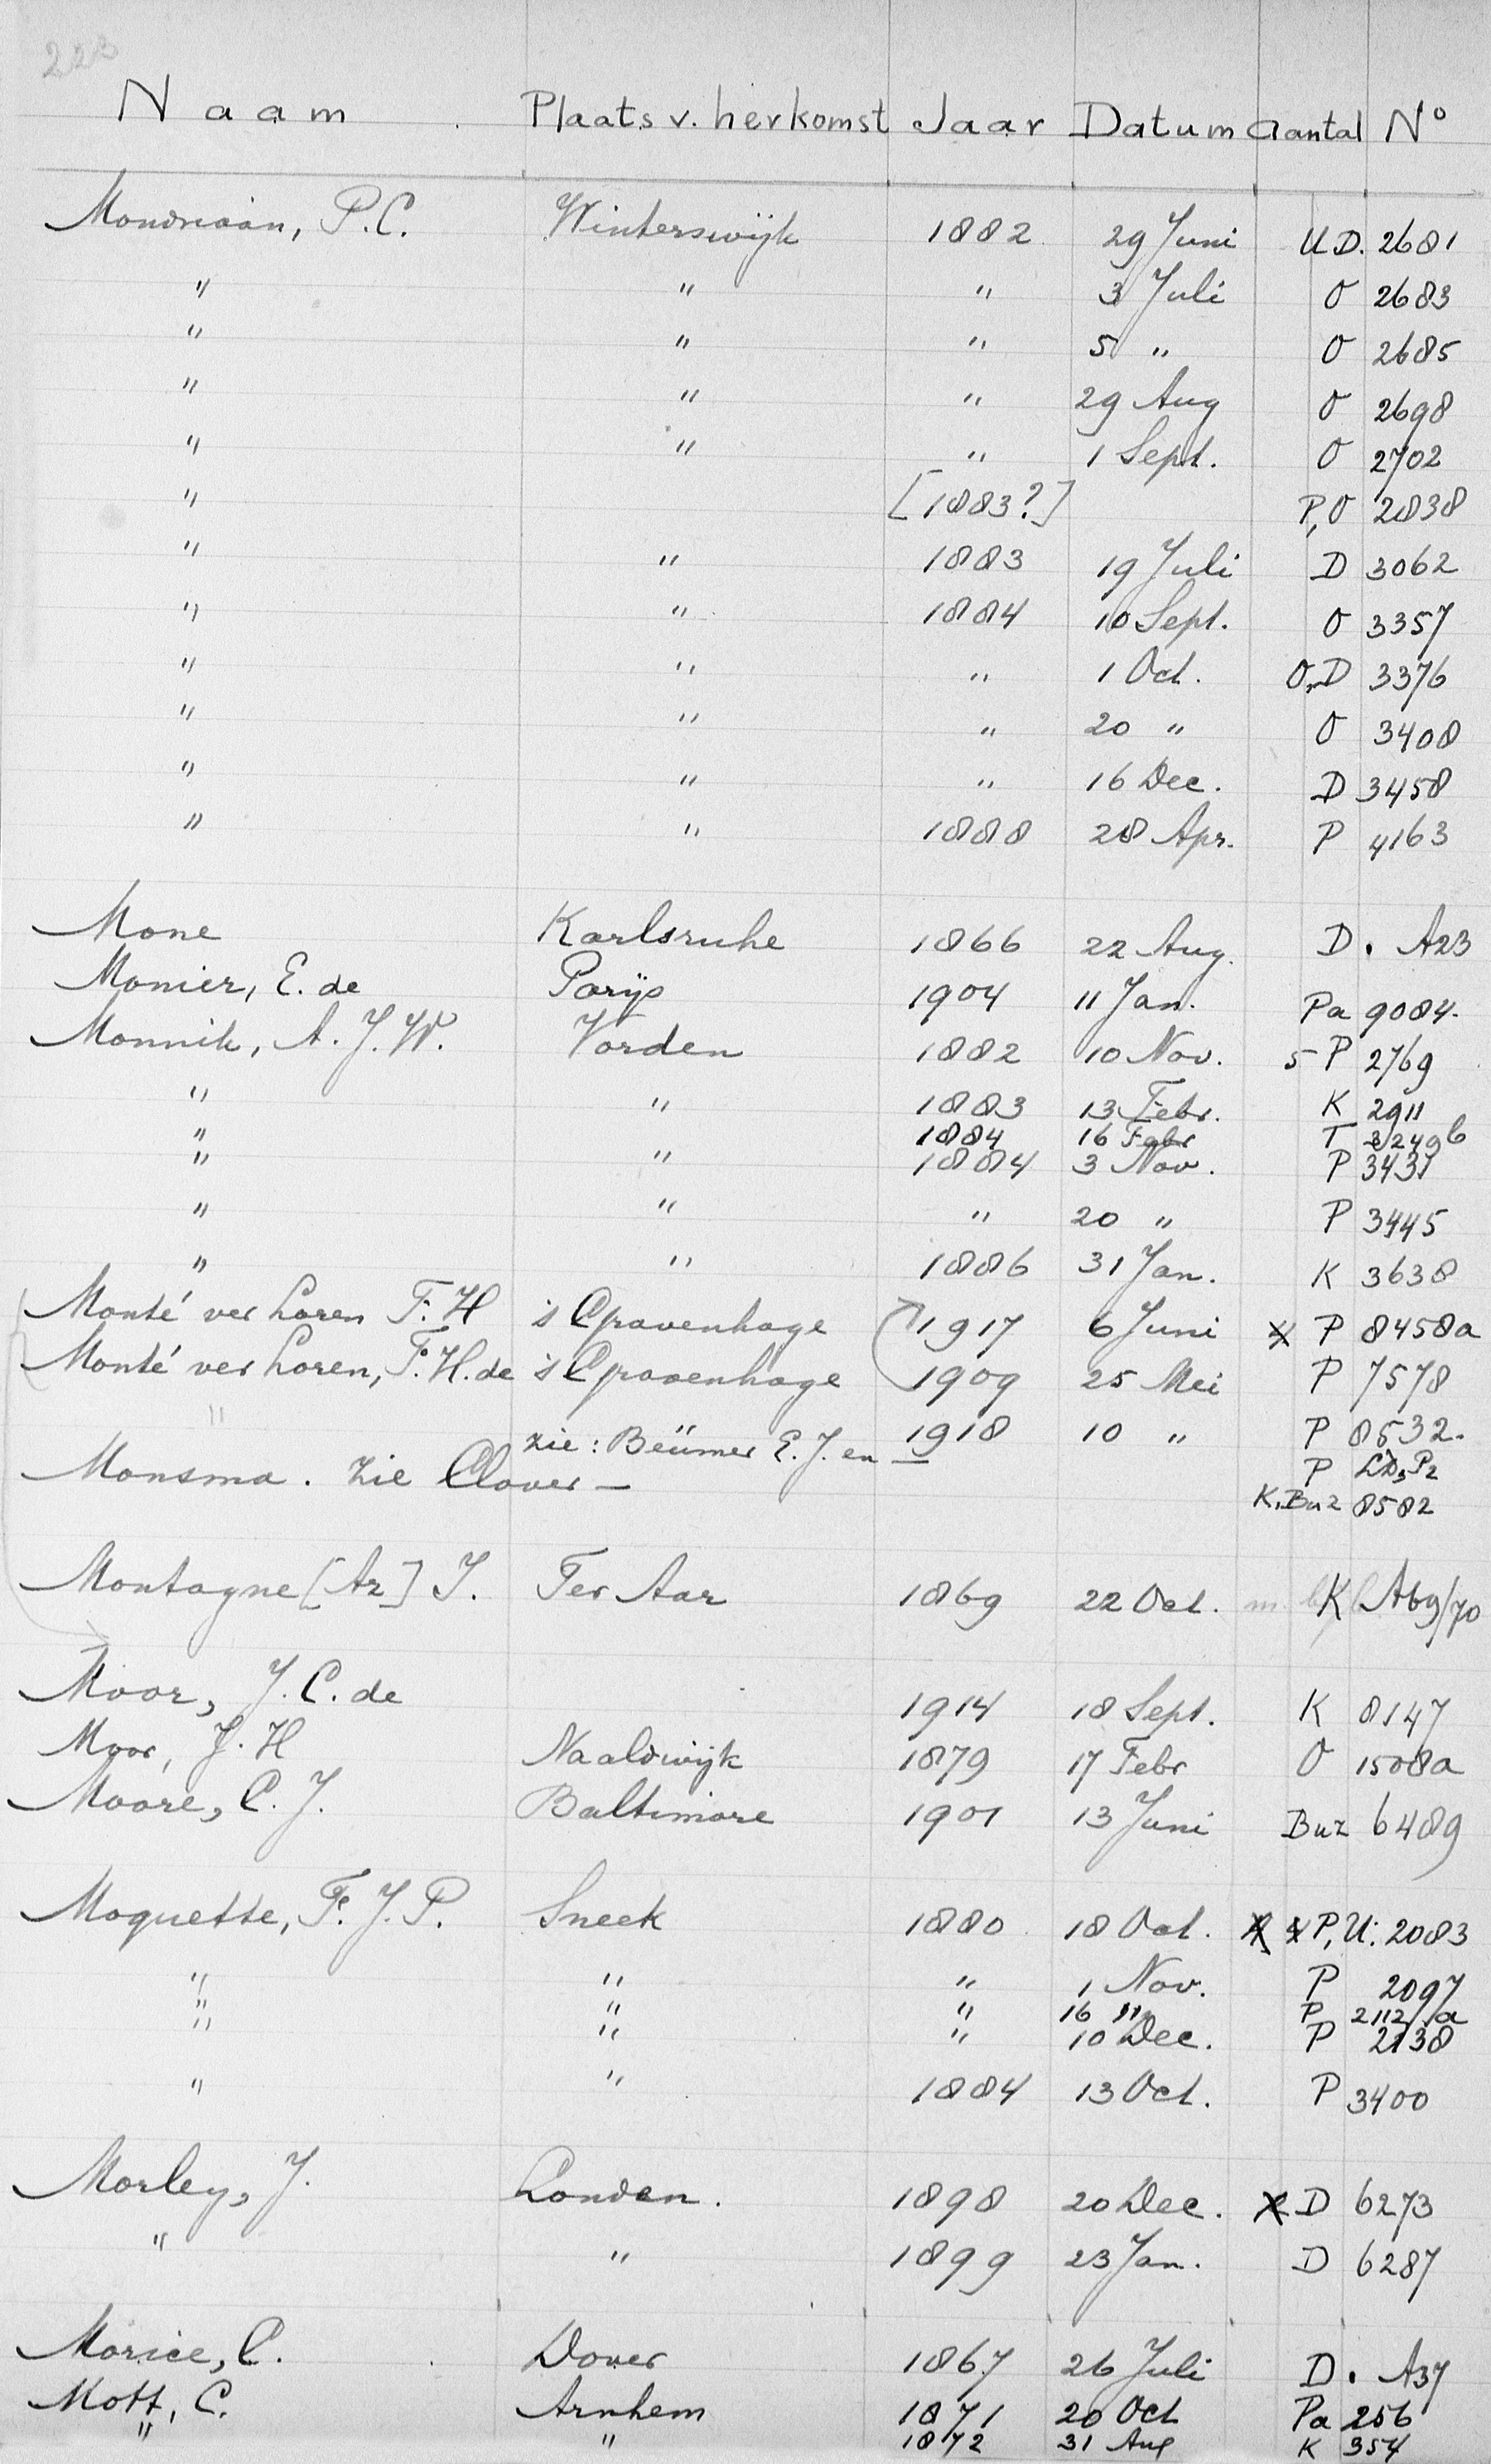 223
Naam Plaats v. herkomst Jaar Datum Aantal No
Mondriaan, P.C. Winterswijk 1882 29 Juni U D. 2681
" " " 3 Juli O 2683
" " " 5 " O 2685
" " " 29 Aug O 2698
" " " 1 Sept. O 2702
" [1883?] P, O 2838
" " 1883 19 Juli D 3062
" " 1884 10 Sept. O 3357
" " " 1 Oct. O, D 3376
" " " 20 " O 3408
" " " 16 Dec. D 3458
" " 1888 28 Apr. P 4163
Mone Karlsruhe 1866 22 Aug. D. A23
Monier, E. de Parijs 1904 11 Jan. Pa 9084.
Monnik, A.J.W. Vorden 1882 10 Nov. 5 P 2769
" " 1883 13 Febr. K 2911
" 1884 16 Febr T 3249b
" " 1884 3 Nov. P 3431
" " " 20 " P 3445
" " 1886 31 Jan. K 3638
Monté ver Loren F.H 's Gravenhage 1917 6 Juni P 8458a
Monté ver Loren, F.H. de 's Gravenhage 1909 25 Mei P 7578
" 1918 10 " P 8532.
zie: Beümer E.J. en
Monsma. zie Clover — P
K, Buz 8582
Montagne [Az] J. Ter Aar 1869 22 Oct. K A69/70
Moor, J.C. de 1914 18 Sept. K 8147
Moor, J.H Naaldwijk 1879 17 Febr O 1508a
Moore, C.J. Baltimore 1901 13 Juni Buz 6489
Moquette, F.J.P. Sneek 1880 18 Oct. P, U. 2083
" " " 1 Nov. P 2097
" " " 16 " P 2112/a
" " " 10 Dec. P 2138
" " 1884 13 Oct. P 3400
Morley, J. Londen. 1898 20 Dec. D 6273
" " 1899 23 Jan. D 6287
Morice, C. Dover 1867 26 Juli D. A37
Mott, C. Arnhem 1871 20 Oct Pa 256
" " 1872 31 Aug K 354